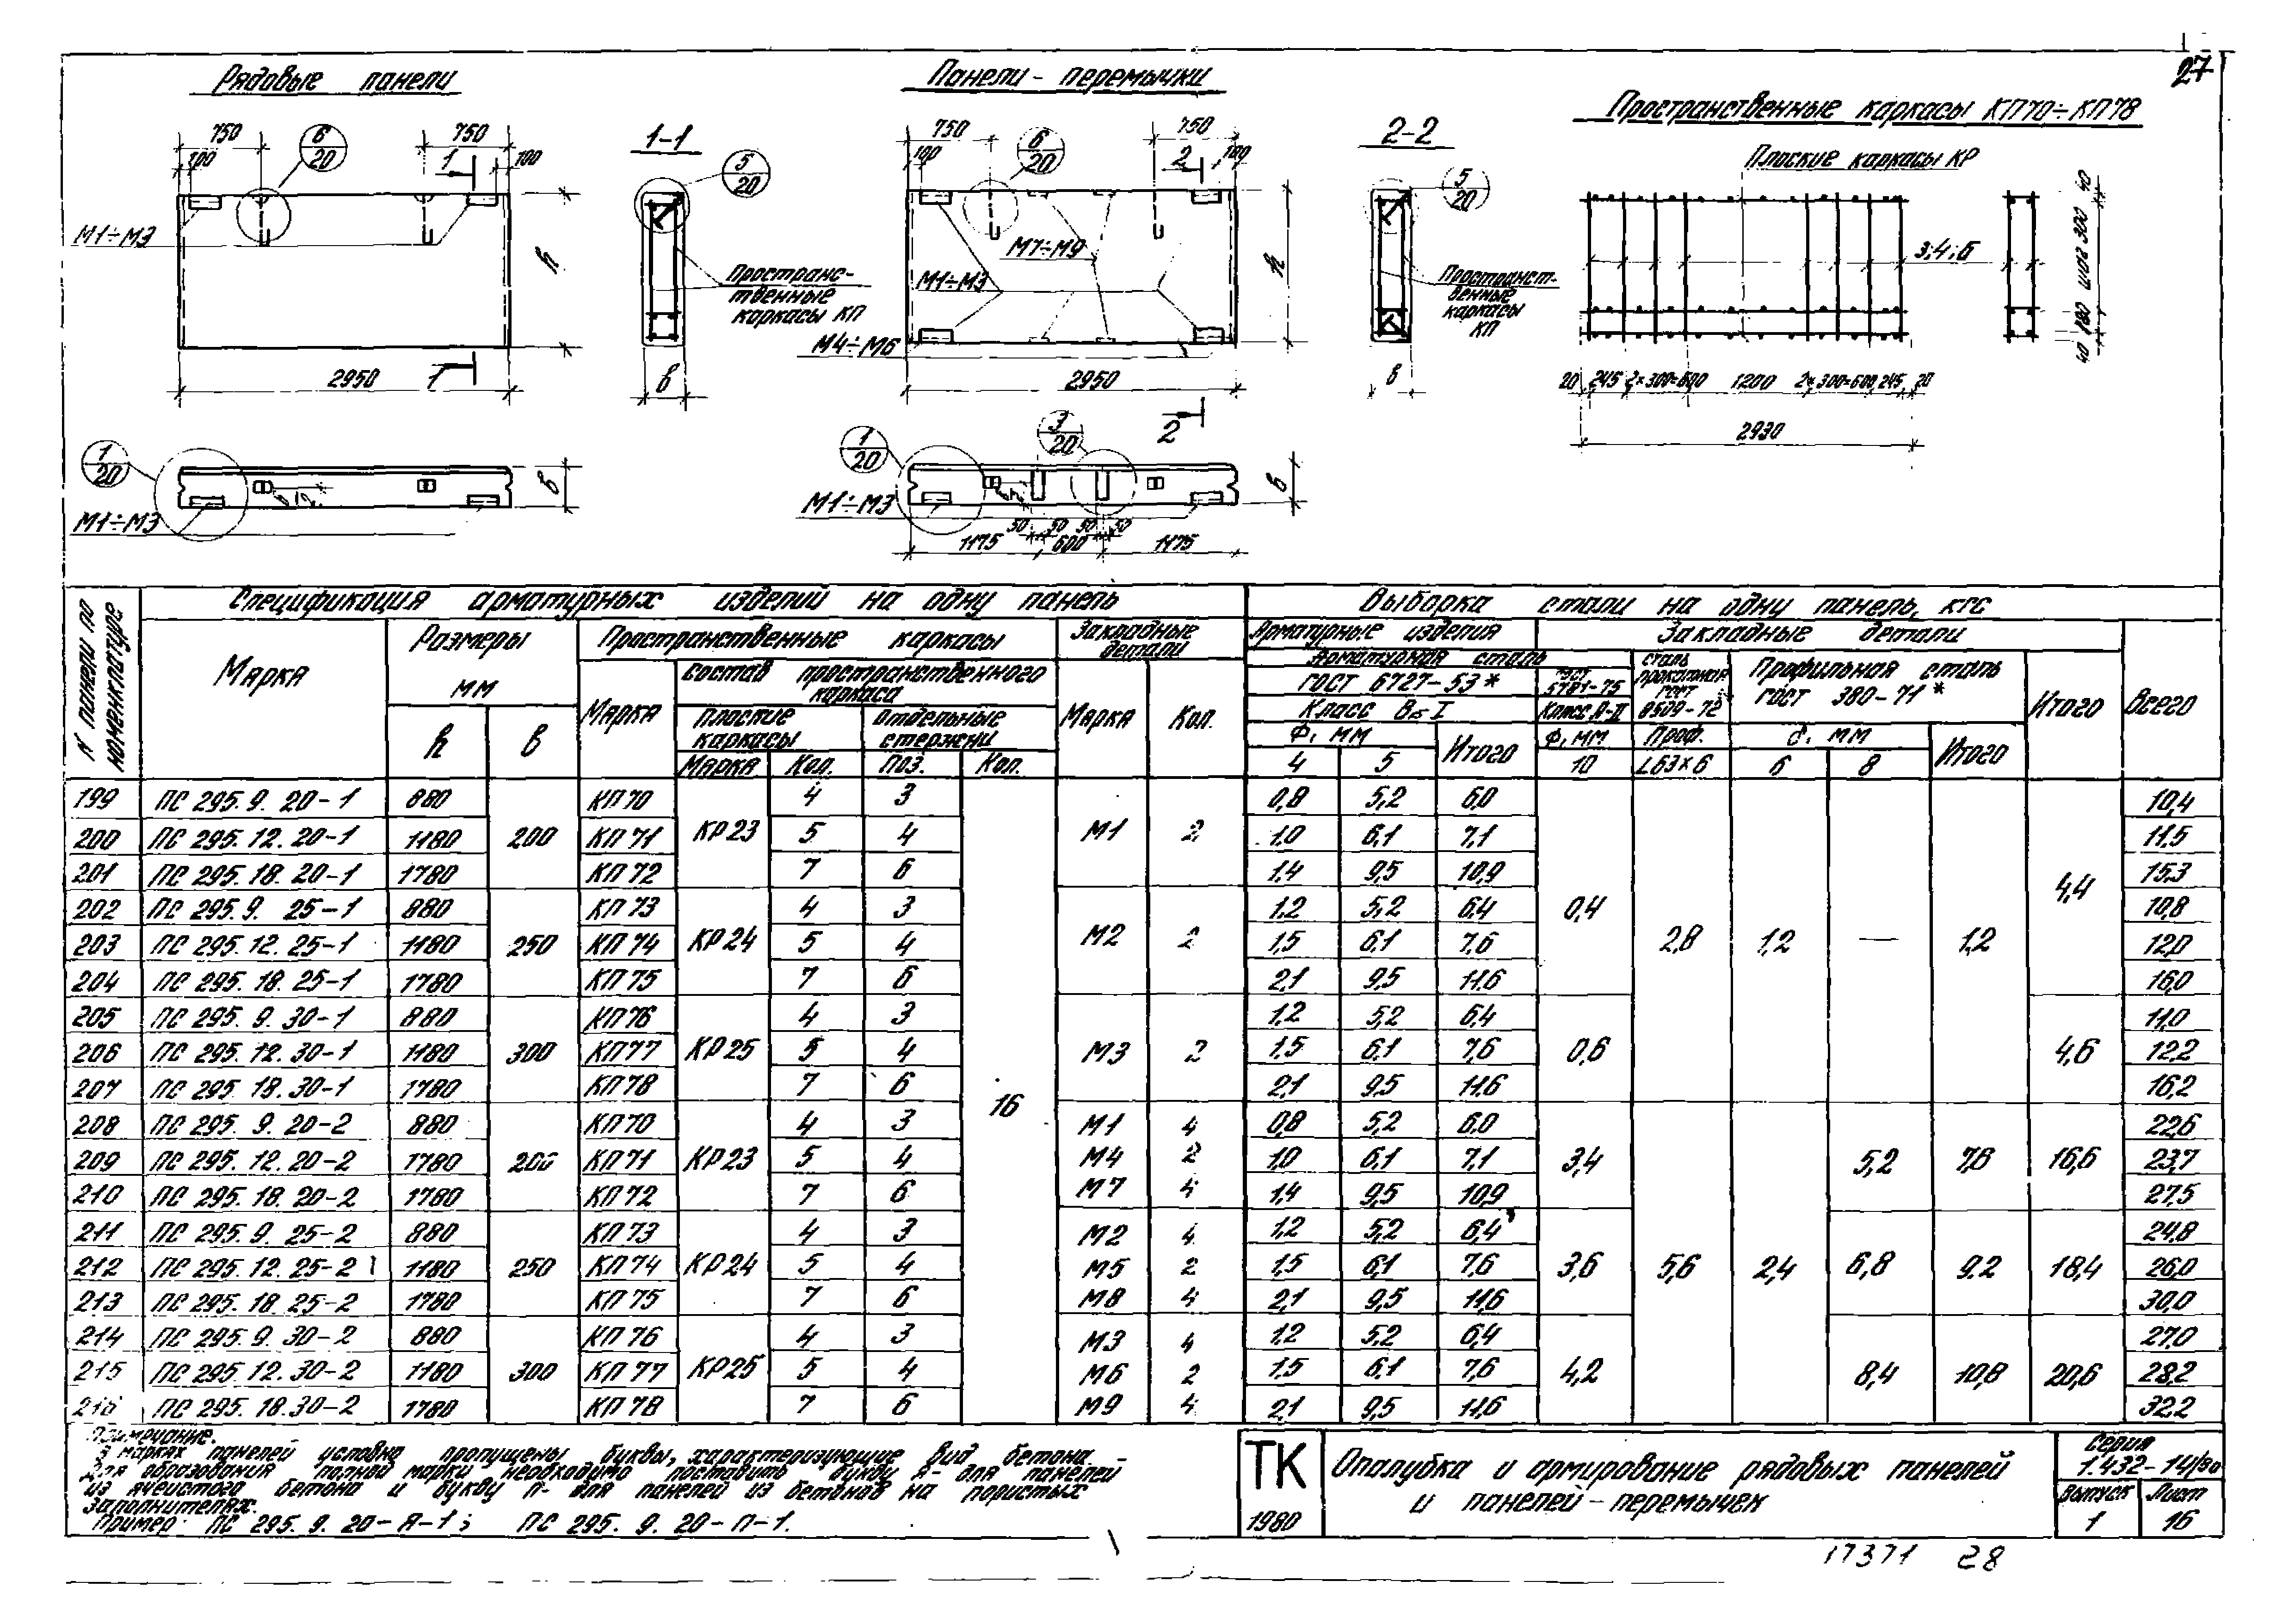 27
Рядовые панели
Панели-перемычки
Пространственные каркасы КП70÷КП78
750 6/20 750 1 100 100
1-1
5/20
М1÷М3
h
Пространс-
твенные
каркасы КП
2950 1
в
1/20
М1÷М3
в
750 6/20 750 2 100 100
2-2
5/20
М7÷М9
М1÷М3
М4÷М6
h
Пространст-
венные
каркасы
КП
2950
2
в
1/20 3/20
М1÷М3
в
50 50 50 50
1175 600 1175
Плоские каркасы КР
3;4;6
40 180 шаг 300 40
20 245 2×300=600 1200 2×300=600 245 20
2930
N панели по номенклатуре
Спецификация арматурных изделий на одну панель
Выборка стали на одну панель, кгс
Марка Размеры мм h в
Пространственные каркасы
Марка
Состав пространственного каркаса
Плоские каркасы Отдельные стержни
Марка Кол. Поз. Кол.
Закладные детали
Марка Кол.
Арматурные изделия Закладные детали
Арматурная сталь
ГОСТ 6727-53* ГОСТ 5781-75
Класс В-I Класс А-II
Ф, мм Итого Ф, мм
4 5 10
Сталь прокатная ГОСТ 8509-72
Проф.
L63×6
Профильная сталь ГОСТ 380-71*
δ, мм Итого
6 8
Итого Всего
199 ПС 295. 9. 20-1 880 КП70 4 3 0,8 5,2 6,0 10,4
200 ПС 295. 12. 20-1 1180 200 КП71 КР23 5 4 М1 2 1,0 6,1 7,1 11,5
201 ПС 295. 18. 20-1 1780 КП72 7 6 1,4 9,5 10,9 4,4 15,3
202 ПС 295. 9. 25-1 880 КП73 4 3 1,2 5,2 6,4 0,4 10,8
203 ПС 295. 12. 25-1 1180 250 КП74 КР24 5 4 М2 2 1,5 6,1 7,6 2,8 1,2 — 1,2 12,0
204 ПС 295. 18. 25-1 1780 КП75 7 6 2,1 9,5 11,6 16,0
205 ПС 295. 9. 30-1 880 КП76 4 3 1,2 5,2 6,4 11,0
206 ПС 295. 12. 30-1 1180 300 КП77 КР25 5 4 М3 2 1,5 6,1 7,6 0,6 4,6 12,2
207 ПС 295. 18. 30-1 1780 КП78 7 6 16 2,1 9,5 11,6 16,2
208 ПС 295. 9. 20-2 880 КП70 4 3 М1 4 0,8 5,2 6,0 22,6
209 ПС 295. 12. 20-2 1780 200 КП71 КР23 5 4 М4 2 1,0 6,1 7,1 3,4 5,2 7,6 16,6 23,7
210 ПС 295. 18. 20-2 1780 КП72 7 6 М7 4 1,4 9,5 10,9 27,5
211 ПС 295. 9. 25-2 880 КП73 4 3 М2 4 1,2 5,2 6,4 24,8
212 ПС 295. 12. 25-2 1180 250 КП74 КР24 5 4 М5 2 1,5 6,1 7,6 3,6 5,6 2,4 6,8 9,2 18,4 26,0
213 ПС 295. 18. 25-2 1780 КП75 7 6 М8 4 2,1 9,5 11,6 30,0
214 ПС 295. 9. 30-2 880 КП76 4 3 М3 4 1,2 5,2 6,4 27,0
215 ПС 295. 12. 30-2 1180 300 КП77 КР25 5 4 М6 2 1,5 6,1 7,6 4,2 8,4 10,8 20,6 28,2
216 ПС 295. 18. 30-2 1780 КП78 7 6 М9 4 2,1 9,5 11,6 32,2
Примечание.
В марках панелей условно пропущены буквы, характеризующие вид бетона.
Для образования полной марки необходимо поставить букву Я- для панелей
из ячеистого бетона и букву П- для панелей из бетонов на пористых
заполнителях.
Пример: ПС 295. 9. 20-Я-1; ПС 295. 9. 20-П-1.
ТК
1980
Опалубка и армирование рядовых панелей
и панелей-перемычек
Серия
1.432-14/80
Выпуск Лист
1 16
17371 28